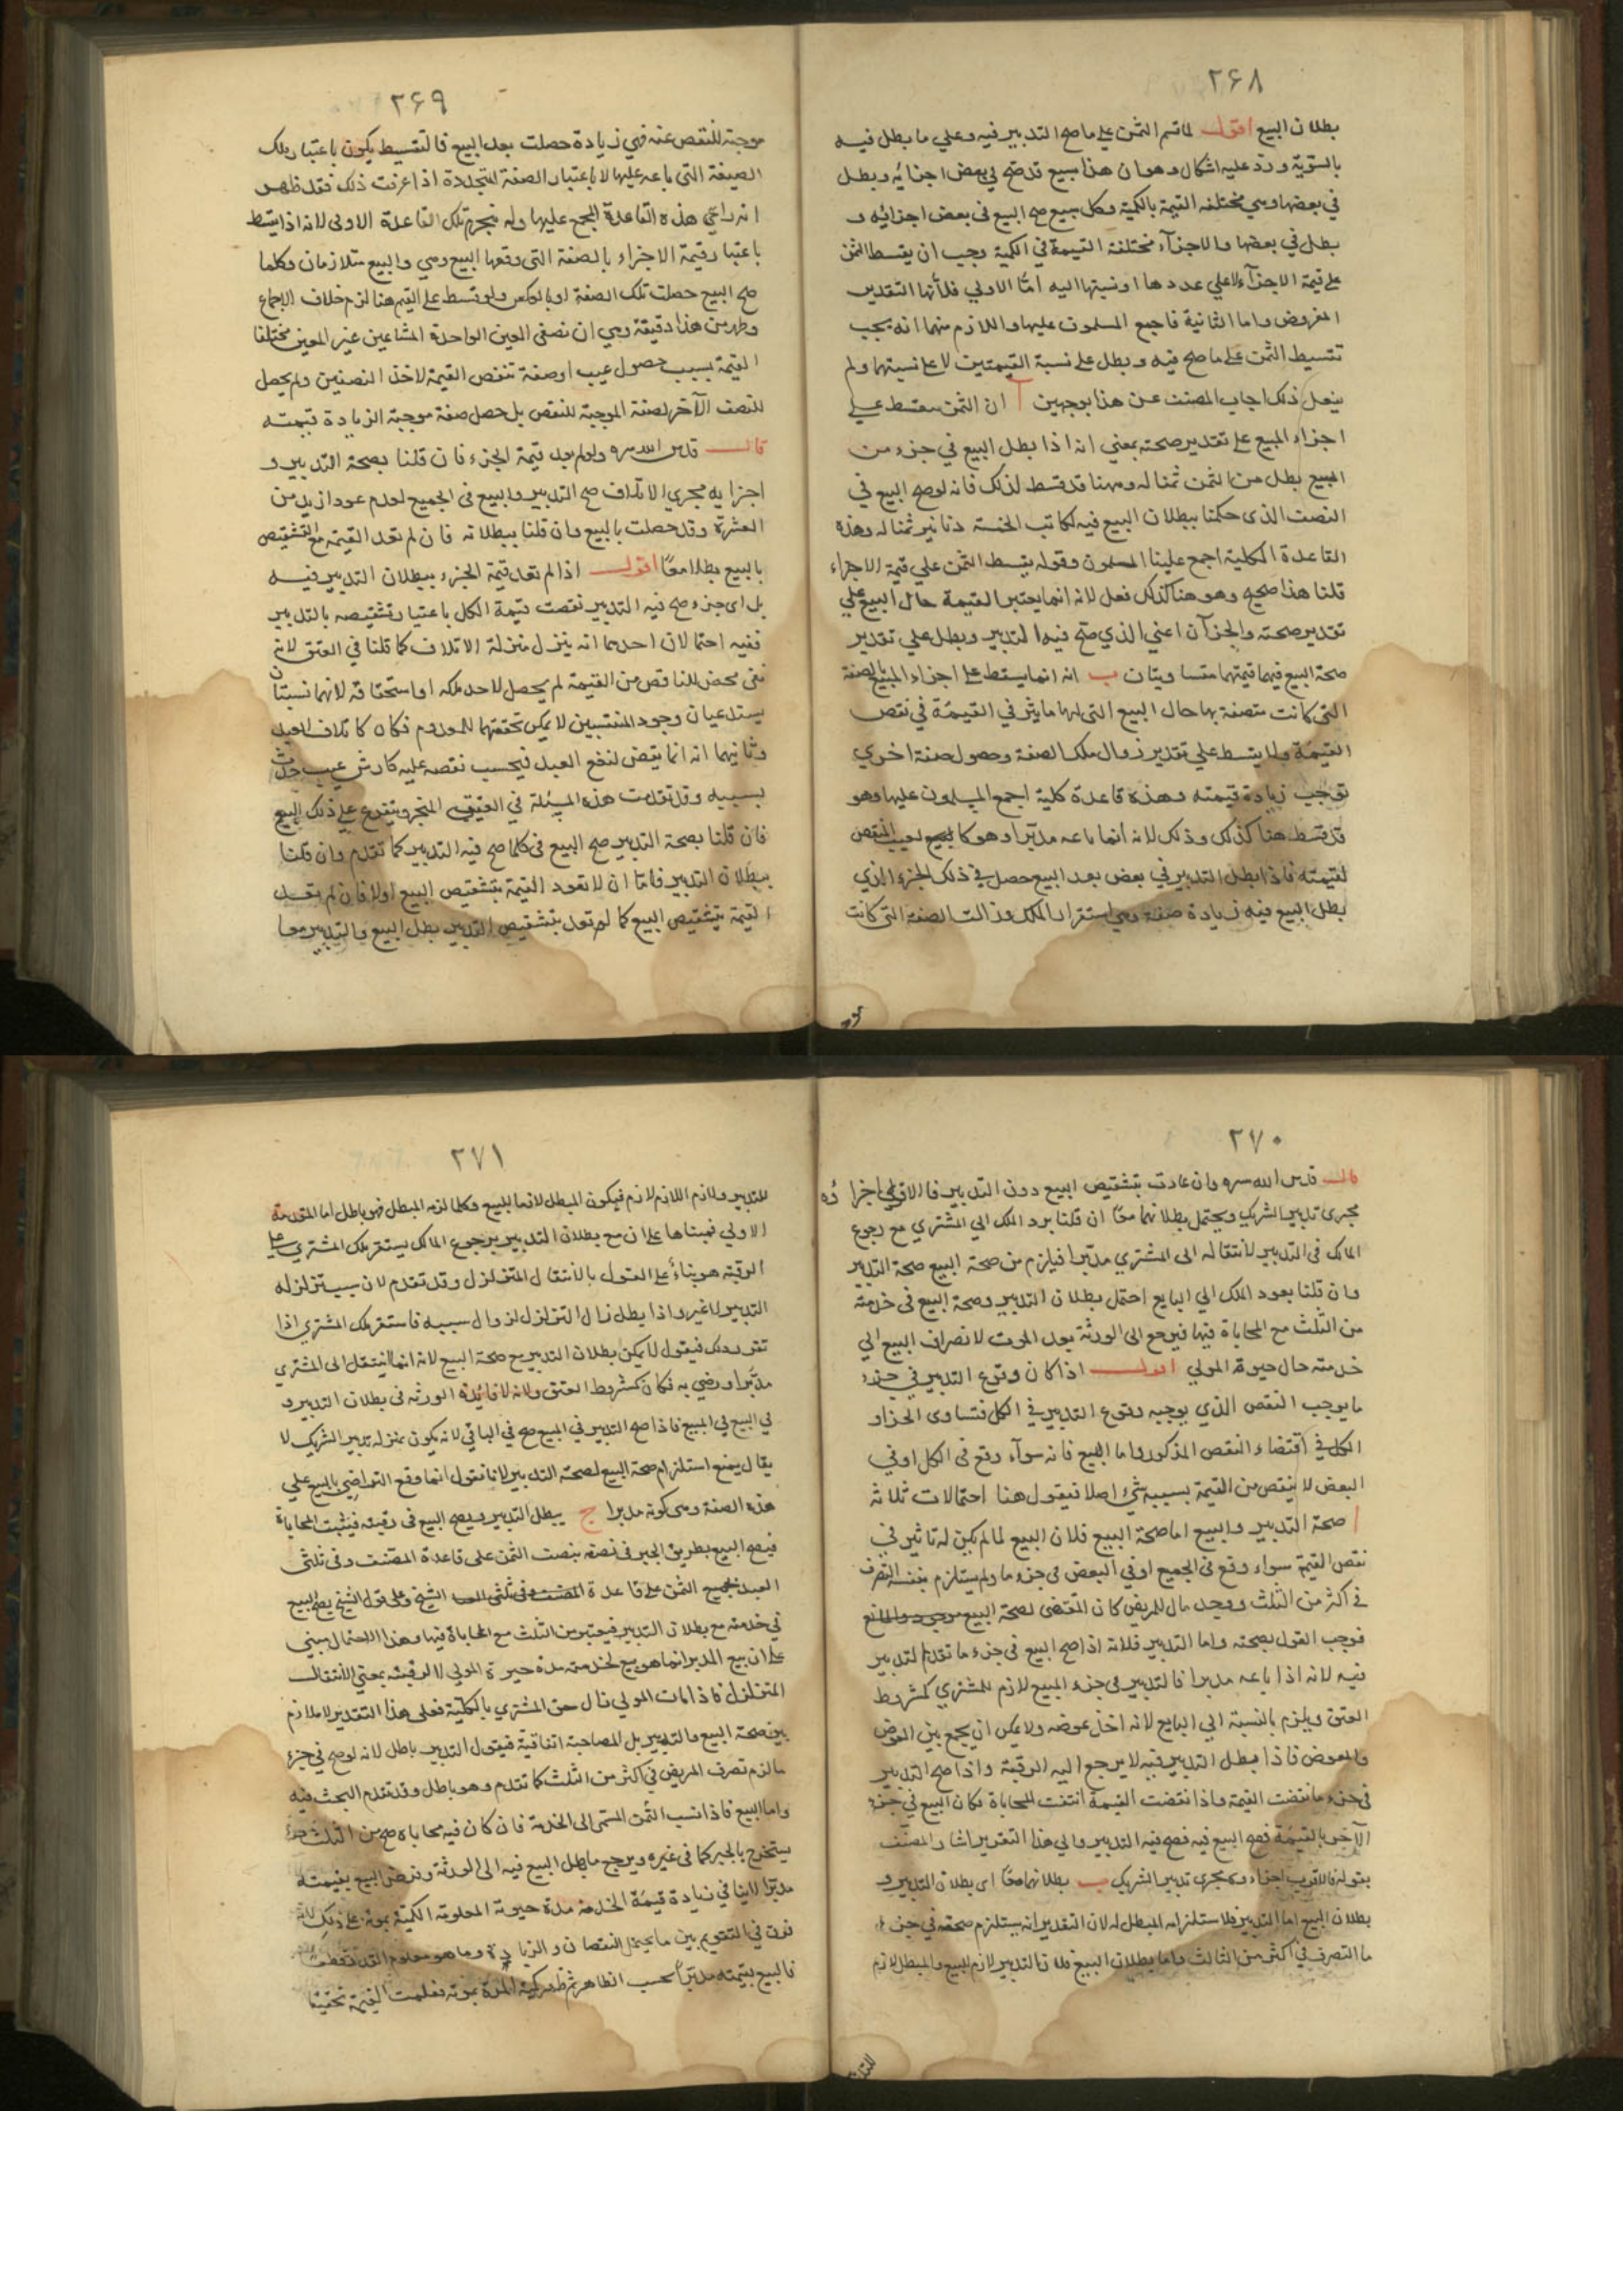 ٢۶٨
بطلان البيع اقول لما قسم الثمن على ما صح التدبير فيه وعلي ما بطل فيه
بالسوية ورد عليه اشكال وهو ان هذا مبيع قد صح في بعض اجزائه وبطل
في بعضها وهي مختلفه القيمة بالكمية وكل مبيع صح البيع في بعض اجزائه و
بطل في بعضها والاجزآء مختلفة القيمة في الكمية وجب ان يقسط الثمن
على قيمة الاجزآء لا علي عددها او نسبتها اليه امّا الاولي فلأنها التقدير
المفروض واما الثانية فاجمع المسلمون عليها واللازم منهما انه يجب
تقسيط الثمن على ما صح فيه وبطل على نسبة القيمتين لا على نسبتهما ولم
يفعل ذلك اجاب المصنف عن هذا بوجهين آ ان الثمن مقسط على
اجزاء المبيع على تقدير صحته بمعني انه اذا بطل البيع في جزء من
المبيع بطل من الثمن ثمنا له وههنا قد قسط لذلك فانه لو صح البيع في
النصف الذى حكمنا ببطلان البيع فيه لكانت الخمسة دنانير ثمنا له وهذه
القاعدة الكلية اجمع علينا المسلمون وقوله يقسط الثمن علي قيمة الاجزاء
قلنا هذا صحيح وهو هنا كذلك فعل لانه انما يعتبر القيمة حال البيع علي
تقدير صحته والجزآن اعني الذي صح فيه التدبير وبطل علي تقدير
صحة البيع فيهما قيمتهما متساويتان ب انه انما يسقط على اجزاء المبيع بالصفة
التي كانت متصفة بها حال البيع التى لها مايثر في القيمة في نقص
القيمة ولا يقسط علي تقدير زوال ملك الصفة وحصول صفة اخري
توجب زيادة قيمته وهذه قاعدة كلية اجمع المسلمون عليها وهو
قد قسط هنا كذلك وذلك لانه انما باعه مدبّرا وهو كالمبيع لعيب المنقص
لقيمته فاذا بطل التدبير في بعض بعد البيع حصل في ذلك الجزء الذي
بطل البيع فيه زيادة صفة وهي استقرار الملك وزالت الصفة التي كانت
موجـ
٢۶٩
موجبة للنقص عنه فهي زيادة حصلت بعد البيع فالتقسيط يكون باعتبار تلك
الصيغة التي باعه عليها لا باعتبار الصفة المتجددة اذا عرفت ذلك فقد ظهر
انه راعي هذه القاعدة المجمع عليها وله ينجرم تلك القاعدة الاولى لانه اذا يقسط
باعتبار قيمة الاجزاء بالصفة التي وقعها البيع وهي والبيع متلازمان وكلما
صح البيع حصلت تلك الصفة او بالعكس ولو قسط على القيم هنا لزم خلاف الاجماع
وظهر من هذا دقيقة وهي ان نصفى العين الواحدة المشاعين غير المعين مختلفا
القيمة بسبب حصول عيب او صفة تنقص القيمة لاخذ النصفين ولم يحصل
للنصف الآخر لصفة الموجبة للنقص بل حصل صفة موجبة الزيادة قيمته
قال قدس الله سره ولو لم يعد قيمة الجزء فان قلنا بصحة التدبير و
اجزايه مجري الاتلاف صح التدبير والبيع في الجميع لعدم عود ازيد من
العشرة وقد حصلت بالبيع وان قلنا ببطلانه فان لم تعد القيمة مع التشقيص
بالبيع بطلا معًا اقول اذا لم تعد قيمة الجزء ببطلان التدبير فيه
بل اي جزء صح فيه التدبير نقصت قيمة الكل باعتبار تشقيصه بالتدبير
ففيه احتمالان احدهما انه ينزل منزلة الاتلاف كما قلنا في العتق لانه
نفى محض للناقص من القيمة لم يحصل لاحد ملكه او استحقاقه لانهما نسبتان
يستدعيان وجود المنتسبين لا يمكن تحققهما للمعدوم فكان كاتلاف العبد
وثانيهما انه انما ينقض لنفع العبد فيحسب نقصه عليه كارش عيب حدث
بسببه وقد تقدمت هذه المسئلة في العتق المنجز ويتفرع على ذلك البيع
فان قلنا بصحة التدبير صح البيع فى كلما صح فيه التدبير كما تقدم وان قلنا
ببطلان التدبير فامّا ان لا تعود القيمة بتشقيص البيع اولا فان لم تعد
القيمة بتشقيص البيع كما لم تعد بتشقيص التدبير بطل البيع والتدبير معا
٢٧٠
قال قدس الله سره وان عادت بتشقيص البيع دون التدبير فالاقوي اجراؤه
مجرى تدبير الشريك ويحتمل بطلانهما معًا ان قلنا برد الملك الي المشتري مع رجوع
المالك فى التدبير لانتقاله الى المشتري مدبّرا فيلزم من صحة البيع صحة التدبير
وان قلنا بعود الملك الي البايع احتمل بطلان التدبير وصحة البيع فى خدمته
من الثلث مع المحاباة فيها فيرجع الى الورثة بعد الموت لانصراف البيع الي
خدمته حال حيوة المولي اقول اذا كان وقوع التدبير في جزء
ما يوجب النقص الذي يوجبه وقوع التدبير في الكل فتساوى الجزاو
الكل في اقتضاء النقص المذكور واما البيع فانه سوآء وقع فى الكل او في
البعض لا ينقص من القيمة بسببه شئ اصلا فيقول هنا احتمالات ثلاثة
ا صحة التدبير والبيع اما صحة البيع فلان البيع لما لم يكن له تاثير في
نقص القيمة سواء وقع فى الجميع او في البعض في جزء ما ولم يستلزم بنفسه التصرف
في اكثر من الثلث ووجد مال للمريض كان المقتضى لصحة البيع موجود والمانع
فوجب القول بصحته واما التدبير فلانه اذا صح البيع فى جزء ما تقدم التدبير
فيه لانه اذا باعه مدبرا فالتدبير فى جزء المبيع لازم للمشتري كمشروط
العتق ويلزم بالنسبة الي البايع لانه اخذ عوضه ولا يمكن ان يجمع بين العوض
والمعوض فاذا بطل التدبير فيه لا يرجع اليه الرقبة واذا صح التدبير
فى جزء ما نقضت القيمة واذا نقضت القيمة انتفت المحاباة فكان البيع في جزء
الآخر بالقيمة فصح البيع فيه فصح فيه التدبير والي هذا التقرير اشار المصنف
بقوله فالاقرب اجزاء وه مجرى تدبير الشريك ب بطلانهما معًا اى بطلان التدبير و
بطلان البيع اما التدبير فلاستلزامه المبطل له لان التقدير انه يستلزم صحته في جزء
ما التصرف في اكثر من الثالث واما بطلان البيع فلان التدبير لازم للبيع والمبطل لازم
للتد
٢٧١
للتدبير ولازم اللازم لازم فيكون المبطل لازما للبيع وكلما لزمه المبطل فهو باطل اما المقدمة
الاولي فبيناها على ان مع بطلان التدبير برجوع المالك يستقر ملك المشتري على
الرقبة هو بناء على القول بالانتقال المتزلزل وقد تقدم لان سبب تزلزله
التدبير لا غير واذا بطل زال التزلزل لزوال سببه فاستقر ملك المشتري اذا
تقرر ذلك فيقول لا يمكن بطلان التدبير مع صحة البيع لانه انما انتقل الى المشتري
مدبّرا ورضي به فكان كمشروط العتق ولانه لا فائدة الورثه فى بطلان التدبير و
في البيع في المبيع فاذا صح التدبير في المبيع صح في الباقي لانه يكون بمنزله تدبير الشريك لا
يقال يمنع استلزام صحة البيع لصحة التدبير لانا نقول انما وقع التراضي بالبيع على
هذه الصفة وهى كونه مدبرا ج يبطل التدبير ويصح البيع فى رقبته فيثبت المحاباة
فيصح البيع بطريق الجبر فى نصفه بنصف الثمن على قاعدة المصنف وفى ثلثى
العبد بجميع الثمن على قاعدة الشيخ وعلى قول الشيخ يصح البيع
في خدمته مع بطلان التدبير فيعتبر من الثلث مع المحاباة فيها وهذا الاحتمال مبني
على ان بيع المدبر انما هو بيع لخدمته مدة حيوة المولي لا لرقبته بمعنى الانتقال
المتزلزل فاذا مات المولي زال حق المشتري بالكلية فعلى هذا التقدير لا ملازم
بين صحة البيع والتدبير بل المصاحبة اتفاقية فيقول التدبير باطل لانه لو صح في جزء
ما لزم تصرف المريض في اكثر من الثلث كما تقدم وهو باطل وقد تقدم البحث فيه
واما البيع فاذا نسب الثمن المسمى الى الخدمة فان كان فيه محاباه صح من الثلث
يستخرج بالجبر كما فى غيره ويرجع ما بطل البيع فيه الى الورثة وفرض البيع بقيمته
مدبّرا لا ينافي زيادة قيمة الخدمة مدة حيوته المعلومة الكمية بموته على ذلك لانه
فرق في التقويم بين ما يحتمل النقصان والزيادة وما هو معلوم القدر فقطعت
فالبيع بقيمته مدبّرا بحسب الظاهر ثم ظهر كمية المدة بموته فعلمت القيمة تحقيقا